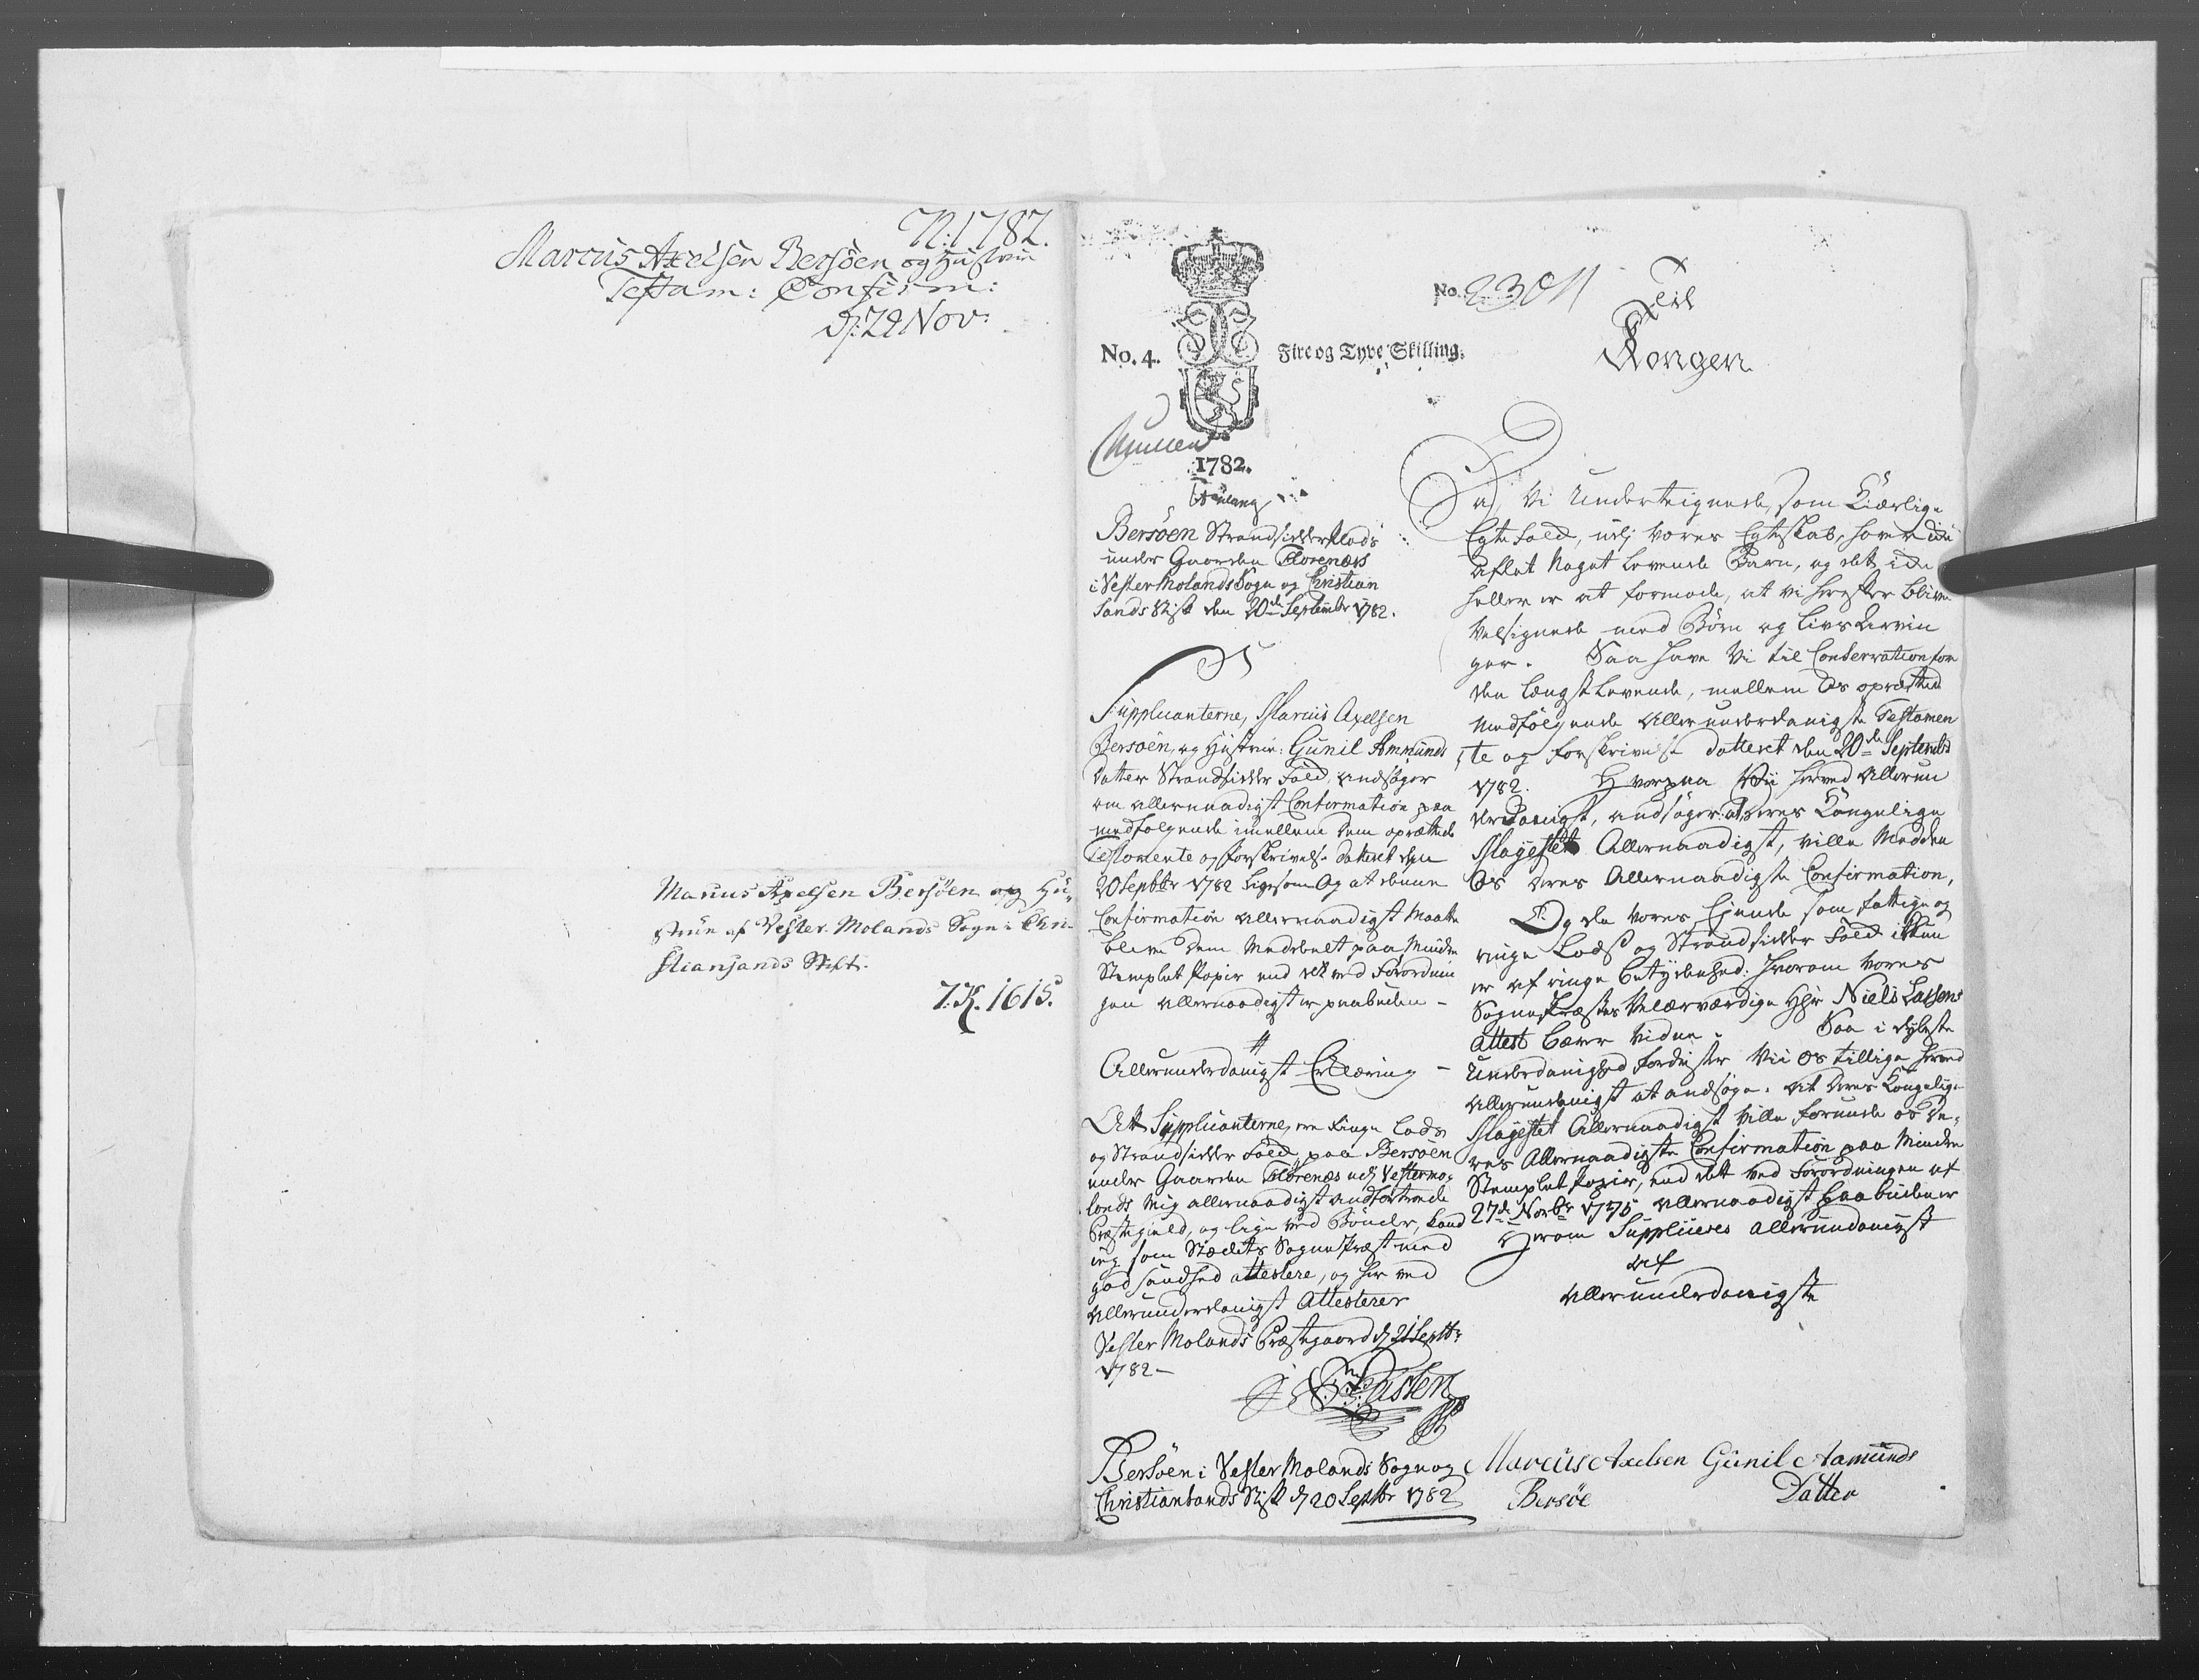 N: 1782.
Marcus Axelsen Bersöen og Hustrue
Testam: Confirm:
d: 29 Nov:
Marcus Axelsen Bersöen og Hu„
strue af Vester Molands Sogn i Chri
stiansands Stift.
7. K. 1615.
No. 4.
Fire og Tyve Skilling.
1782.
Bersöen Strandsidder Plads
under Gaarden Florenæs
i Vester Molands Sogn og Christian
Sands Stift den 20de Septembr 1782.
Supplicanterne, Marcus Axelsen
Bersöen, og Hustrue: Gunil Ammunds
Datter Strandsidder Folk, andsøger
om allernaadigst Confirmation paa
medfølgende imellem dem oprettede
Testamente og forskrivelse datteret den
20 Septbr 1782 Ligesom Og at denne
Confirmation allernaadigst Maatte
blive dem Meddeelt paa Mindre
Stemplet Papir end det ved Forordnin
gen allernaadigst er paabuden –
//
Allerunderdanigst Erklæring –
At Supplicanterne, ere Ringe Lods
og Strandsidder Folk, paa Bersöen
under Gaarden Florenæs udj Vestermo„
lands Mig allernaadigst andfortroede
Præstegield, og lige ved Bönder, kand
ieg som Stædets Sogne Præst med
god sandhed attestere, og her ved
allerunderdanigst Attesterer
Vester Molands Præstegaard d 21 Septbr
1782 –
N: Lassen
Bersöen i Vester Molands Sogn og
Christiansands Stift d 20 Septbr 1782
No. 23011
Til
Kongen
Da, Vi Underteignede, som Kiærlige
Egte Folk, udj vores Egteskab, haver icke
aflet Noget Levende Barn, og det icke
heller er at formode, at vi herefter blive
Velsignede med Börn og Livs Arvin
ger. Saa have Vi til Conservation for
den Længst Levende, mellem Os oprettet
medfølgende allerunderdanigste Testamen
te og Forskrivelse datteret den 20de Septembr
1782. Hvorpaa Vii herved Allerun
derdanigst, andsøger: at Deres Kongelige
Mayestet Allernaadigst, ville Meddele
Os deres Allernaadigste Confirmation,
Og da vores Ejende som fattige og
ringe Lods og Strandsidder Folk ikkun
er af ringe Betydenhed: hvorom vores
Sogne Præstes Velærværdige Hr: Niels Lassens
attest bærer Vidne. Saa i dybeste
Underdanighed fordrister Vii Os tillige herved
allerunderdanigst at andsøge: At Deres Kongelige
Mayestet Allernaadigst Ville forunde os De„
res Allernaadigste Confirmation paa Mindre
Stemplet Papir, end det ved Forordningen af
27de Novbr 1775 allernaadigst paabuden er
Herom Suppliceres allerunderdanigst
af
allerunderdanigste
Marcus Axelsen Gunil Aamunds
Bersöe Datter